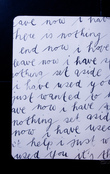 ave now i have
here is nothing
end now i have
leave now i have y
nothing set aside
i have used yo
just wanted yo
ave now i have
nothing set aside
now i have used
help i just w
used you it's